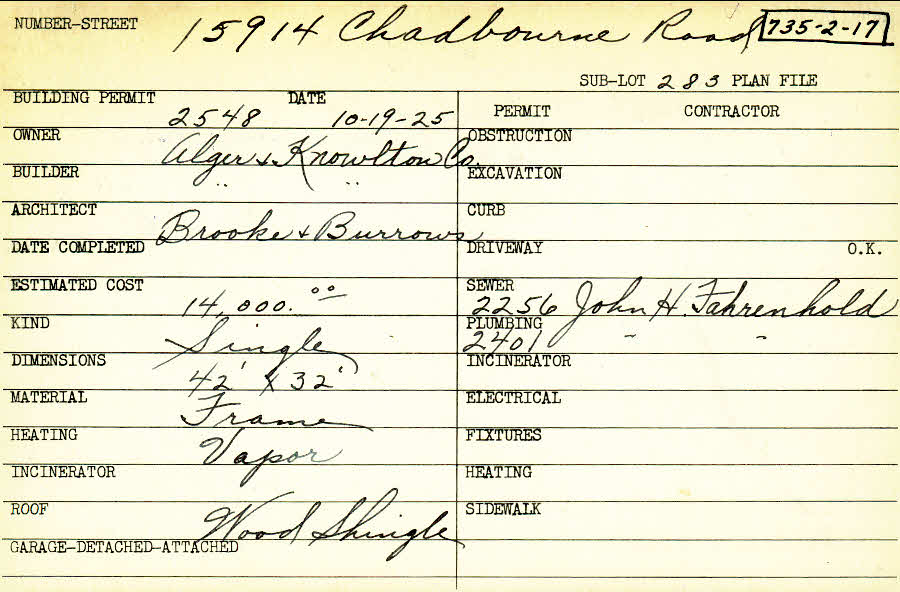 NUMBER-STREET 15914 Chadbourne Road 735-2-17
SUB-LOT 283 PLAN FILE
BUILDING PERMIT 2548 DATE 10-19-25
PERMIT CONTRACTOR
OWNER Alger & Knowlton Co.
OBSTRUCTION
BUILDER " "
EXCAVATION
ARCHITECT Brooke & Burrows
CURB
DATE COMPLETED
DRIVEWAY O.K.
ESTIMATED COST 14,000.00
SEWER 2256 John H. Fahrenhold
KIND Single
PLUMBING 2401 " "
DIMENSIONS 42' x 32'
INCINERATOR
MATERIAL Frame
ELECTRICAL
HEATING Vapor
FIXTURES
INCINERATOR
HEATING
ROOF Wood Shingle
SIDEWALK
GARAGE-DETACHED-ATTACHED